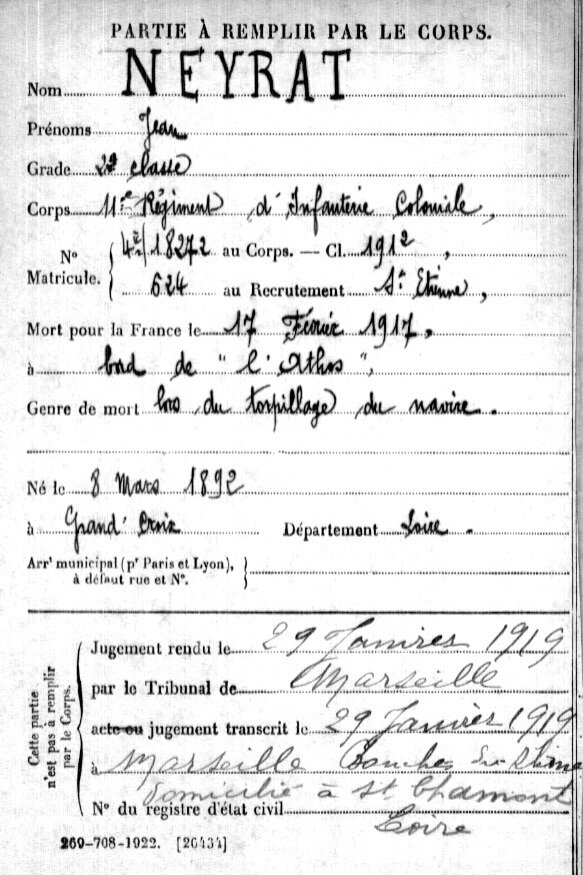 PARTIE À REMPLIR PAR LE CORPS.
Nom NEYRAT
Prénoms Jean
Grade 2e classe
Corps 11e Régiment d'Infanterie Coloniale,
No Matricule. 4e/18272 au Corps. — Cl. 1912,
624 au Recrutement St Etienne,
Mort pour la France le 17 Février 1917,
à bord de "l'Athos",
Genre de mort lors du torpillage du navire.
Né le 8 Mars 1892
à Grand' Croix Département Loire.
Arrt municipal (pr Paris et Lyon),
à défaut rue et No.
Cette partie n'est pas à remplir par le Corps.
Jugement rendu le 29 Janvier 1919
par le Tribunal de Marseille
acte ou jugement transcrit le 29 Janvier 1919
à Marseille Bouches du Rhône
domicilié à St Chamont
No du registre d'état civil Loire
269-708-1922. [26434]